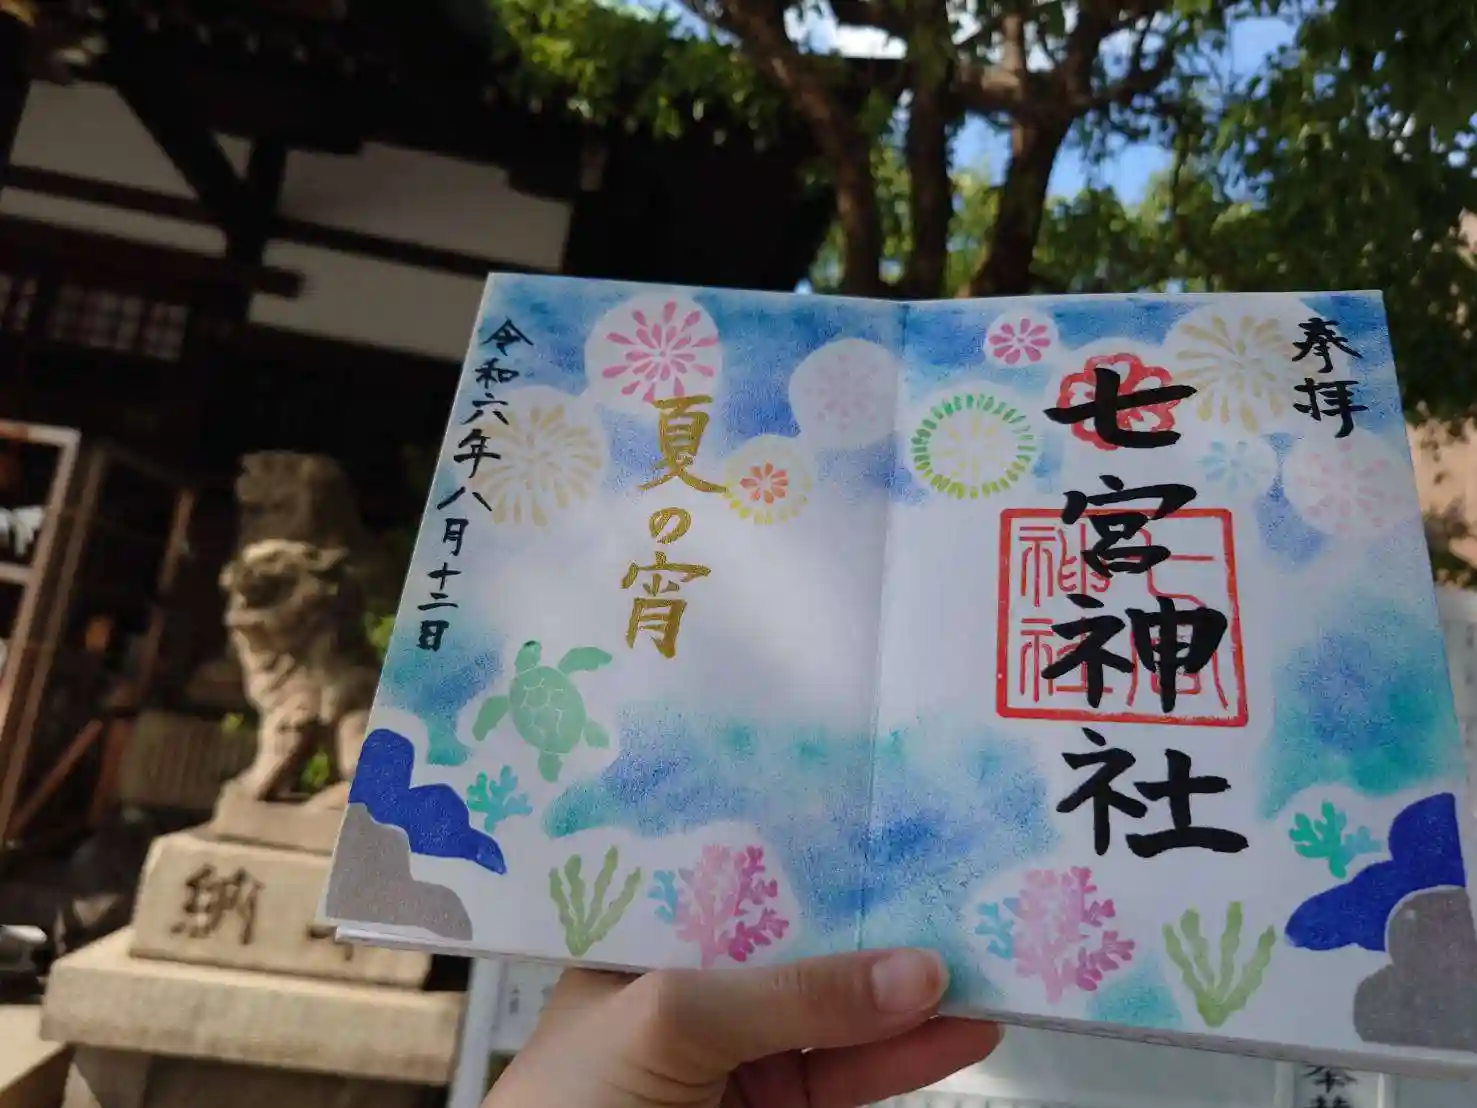 奉拝
七宮神社
七宮
神社
夏の宵
令和六年八月十二日
納